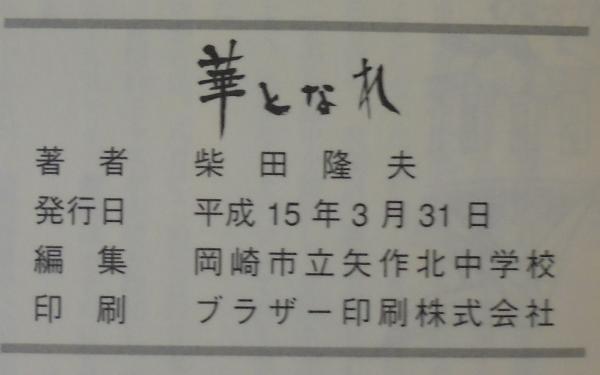 華となれ
著者 柴田隆夫
発行日 平成15年3月31日
編集 岡崎市立矢作北中学校
印刷 ブラザー印刷株式会社